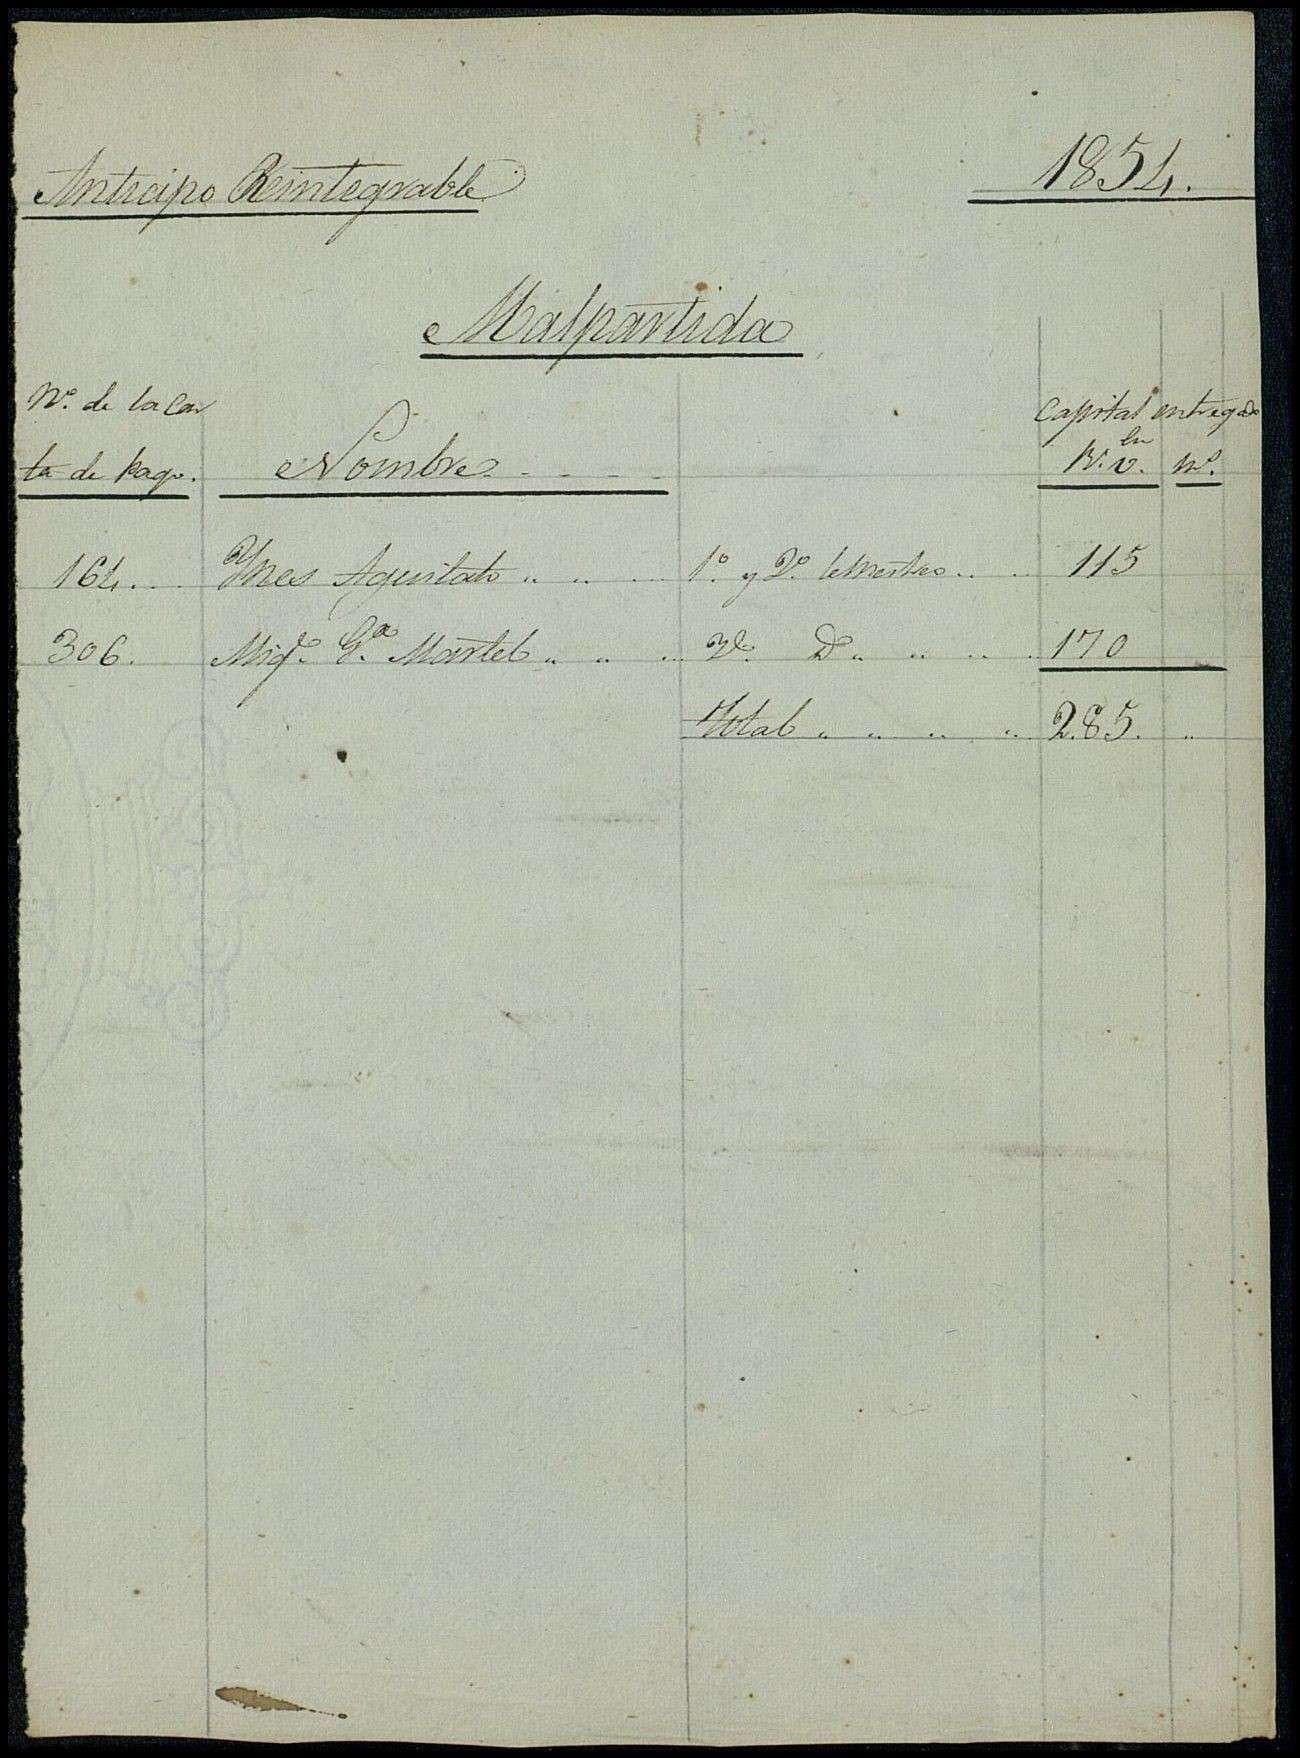 Anticipo Reintegrable 1854.
Malpartida
Nº. de la Car
ta de Pago. Nombre - - - Capital entregado en R.ˢ v.ⁿ mˢ.
164. Ynes .. .. 1º. y 2º. Semestre .. 115
306. Migˡ. Gª. Martel „ „ .. 2º. Dº „ .. .. 170
Total „ „ „ „ 285. „